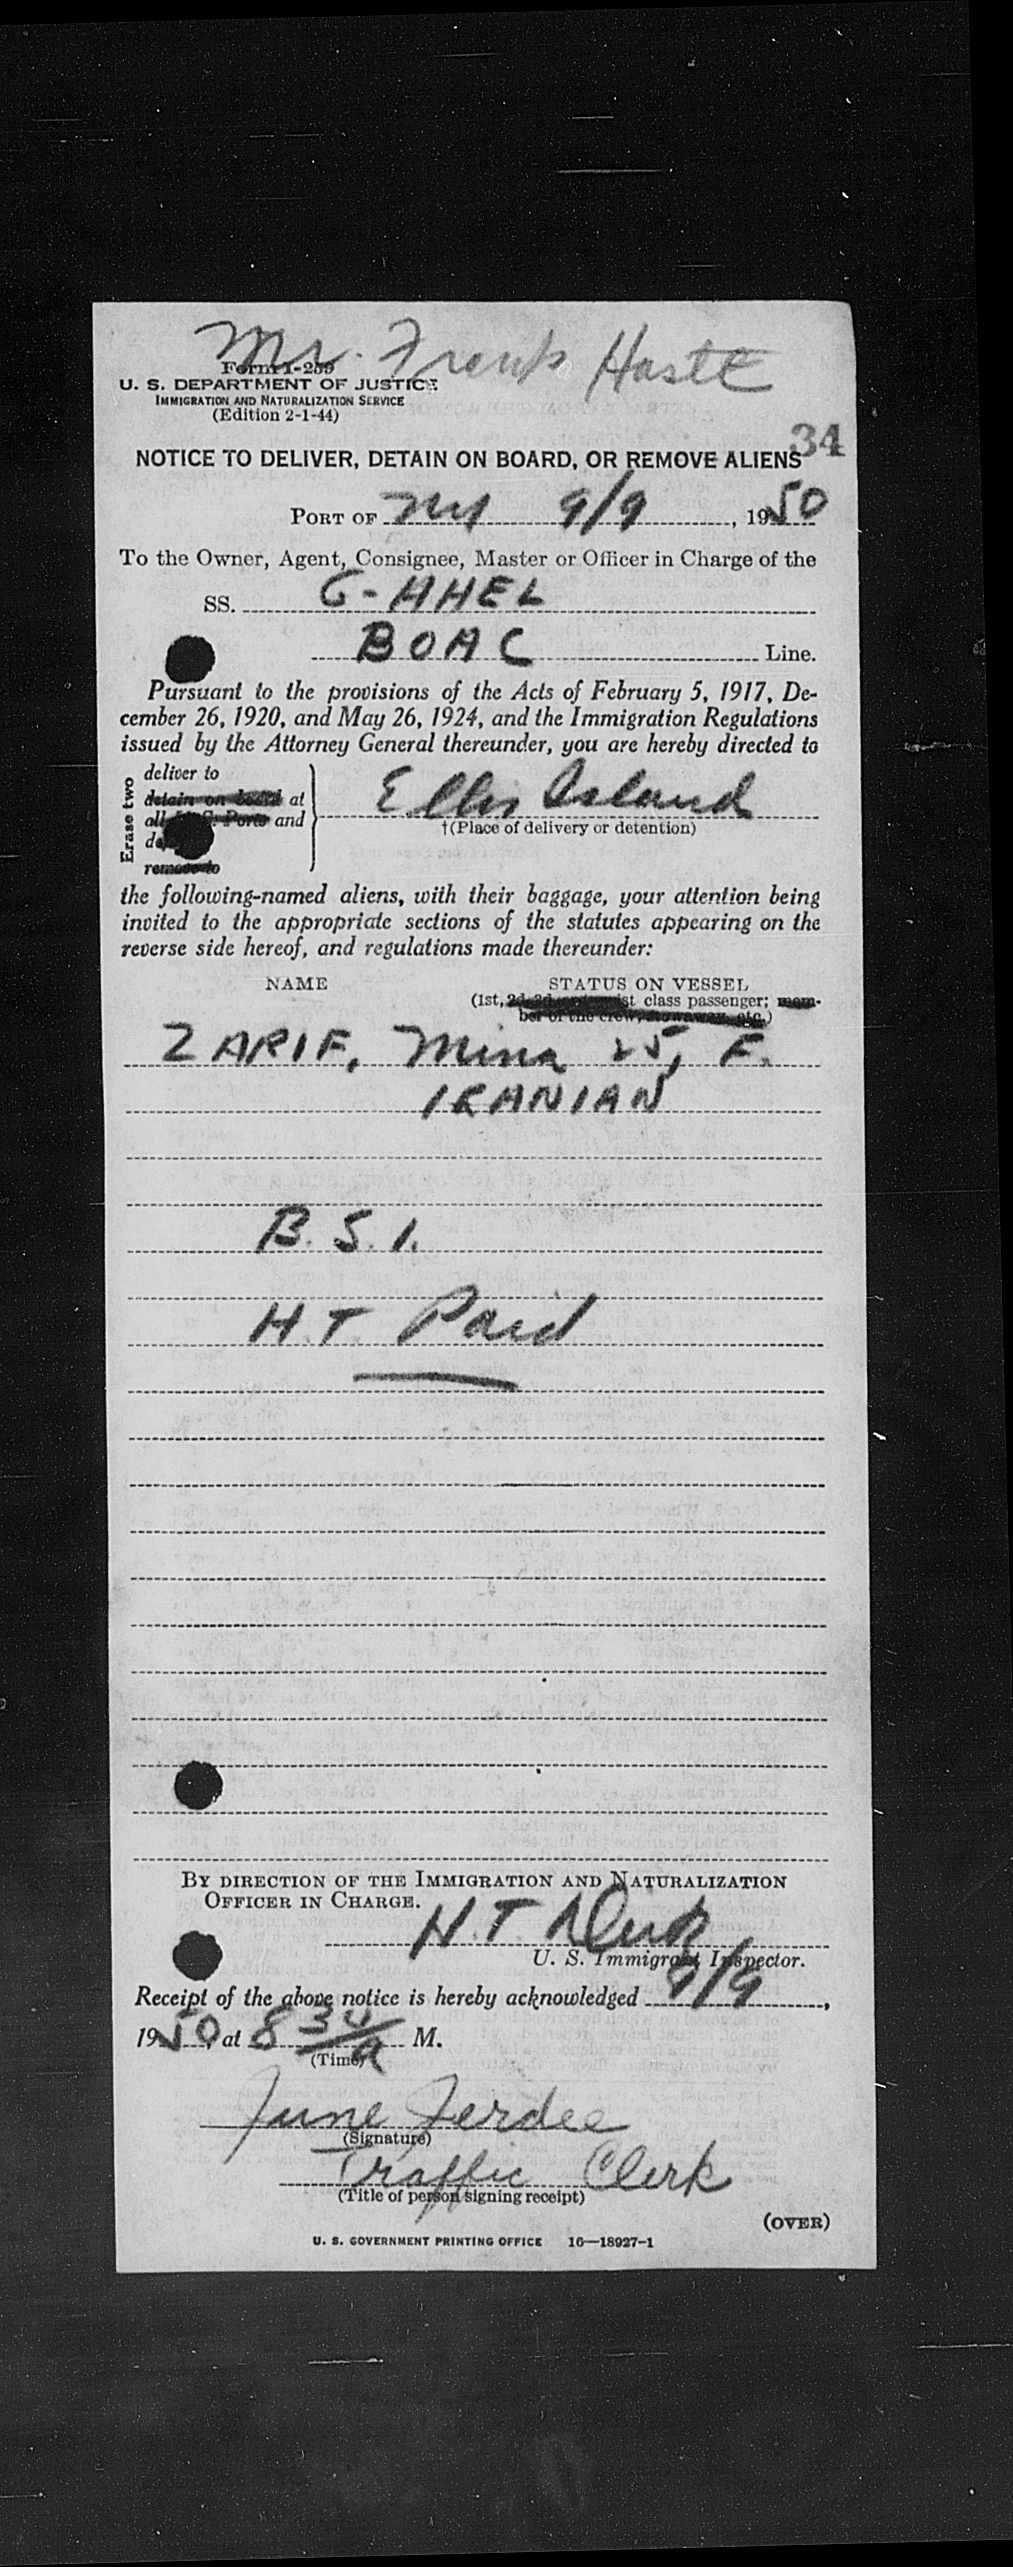 Mr. Frank Haste
Form I-259
U. S. DEPARTMENT OF JUSTICE
IMMIGRATION AND NATURALIZATION SERVICE
(Edition 2-1-44)
34
NOTICE TO DELIVER, DETAIN ON BOARD, OR REMOVE ALIENS
PORT OF NY 9/9, 1950
To the Owner, Agent, Consignee, Master or Officer in Charge of the
SS. G-AHEL
BOAC Line.
Pursuant to the provisions of the Acts of February 5, 1917, De-
cember 26, 1920, and May 26, 1924, and the Immigration Regulations
issued by the Attorney General thereunder, you are hereby directed to
Erase two
deliver to
detain on board at
all U. S. Ports and
remove to
Ellis Island
†(Place of delivery or detention)
the following-named aliens, with their baggage, your attention being
invited to the appropriate sections of the statutes appearing on the
reverse side hereof, and regulations made thereunder:
NAME STATUS ON VESSEL
(1st, 2d, 3d, class passenger; mem-
ber of the crew, stowaway, etc.)
ZARIF, Mina 25, F.
IRANIAN
B. S. I.
H. T. Paid
BY DIRECTION OF THE IMMIGRATION AND NATURALIZATION
OFFICER IN CHARGE.
H. T.
U. S. Immigrant Inspector.
Receipt of the above notice is hereby acknowledged 9/9,
1950, at 8 30/a M.
(Time)
June Ferdee
(Signature)
Traffic Clerk
(Title of person signing receipt)
(OVER)
U. S. GOVERNMENT PRINTING OFFICE 16—18927-1